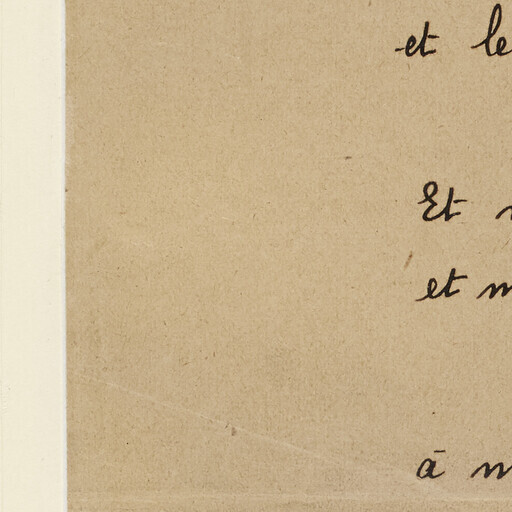 et le
Et
et m
à m